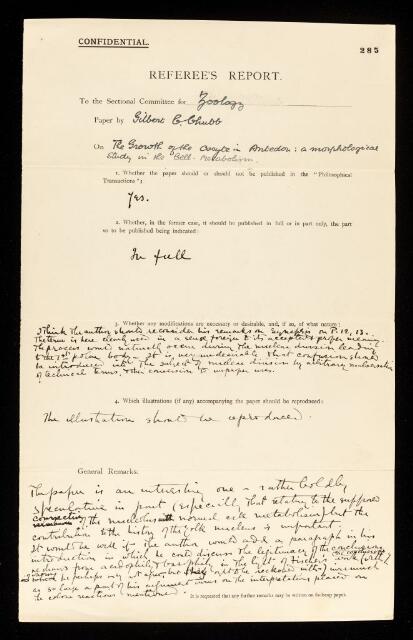 CONFIDENTIAL.
285
REFEREE'S REPORT.
To the Sectional Committee for Zoology
Paper by Gilbert C. Chubb
On The Growth of the Oocyte in Antedon: a morphological
Study in the Cell-Metabolism.
1. Whether the paper should or should not be published in the "Philosophical
Transactions":
Yes.
2. Whether, in the former case, it should be published in full or in part only, the part
so to be published being indicated:
In full
3. Whether any modifications are necessary or desirable, and, if so, of what nature:
I think the author should reconsider his remarks on Synapsis on P. 12, 13.
The term is here clearly used in a sense foreign to its accepted & proper meaning.
The process would naturally occur during the nuclear division leading
to the 1st polar body. It is very undesirable that confusion should
be introduced into the subject of nuclear division by arbitrary
of technical terms, & their conversion to improper uses.
4. Which illustrations (if any) accompanying the paper should be reproduced:
The illustrations should be reproduced.
General Remarks.
The paper is an interesting one — rather boldly
speculative in point (especially that relating to the supposed
connection of the nucleolus with normal cell metabolism) but the
contribution to the history of the yolk nucleus is important.
It would be well if the author would add a paragraph in his
introduction in which he could discuss the legitimacy of the conclusions
drawn from acidophily & basophily in the light of Fischer's work (which
he perhaps may not agree, but they ought to be reckoned with) inasmuch
as so large a part of his argument turns on the interpretation placed on
the colour reactions mentioned.
It is requested that any further remarks may be written on foolscap paper.